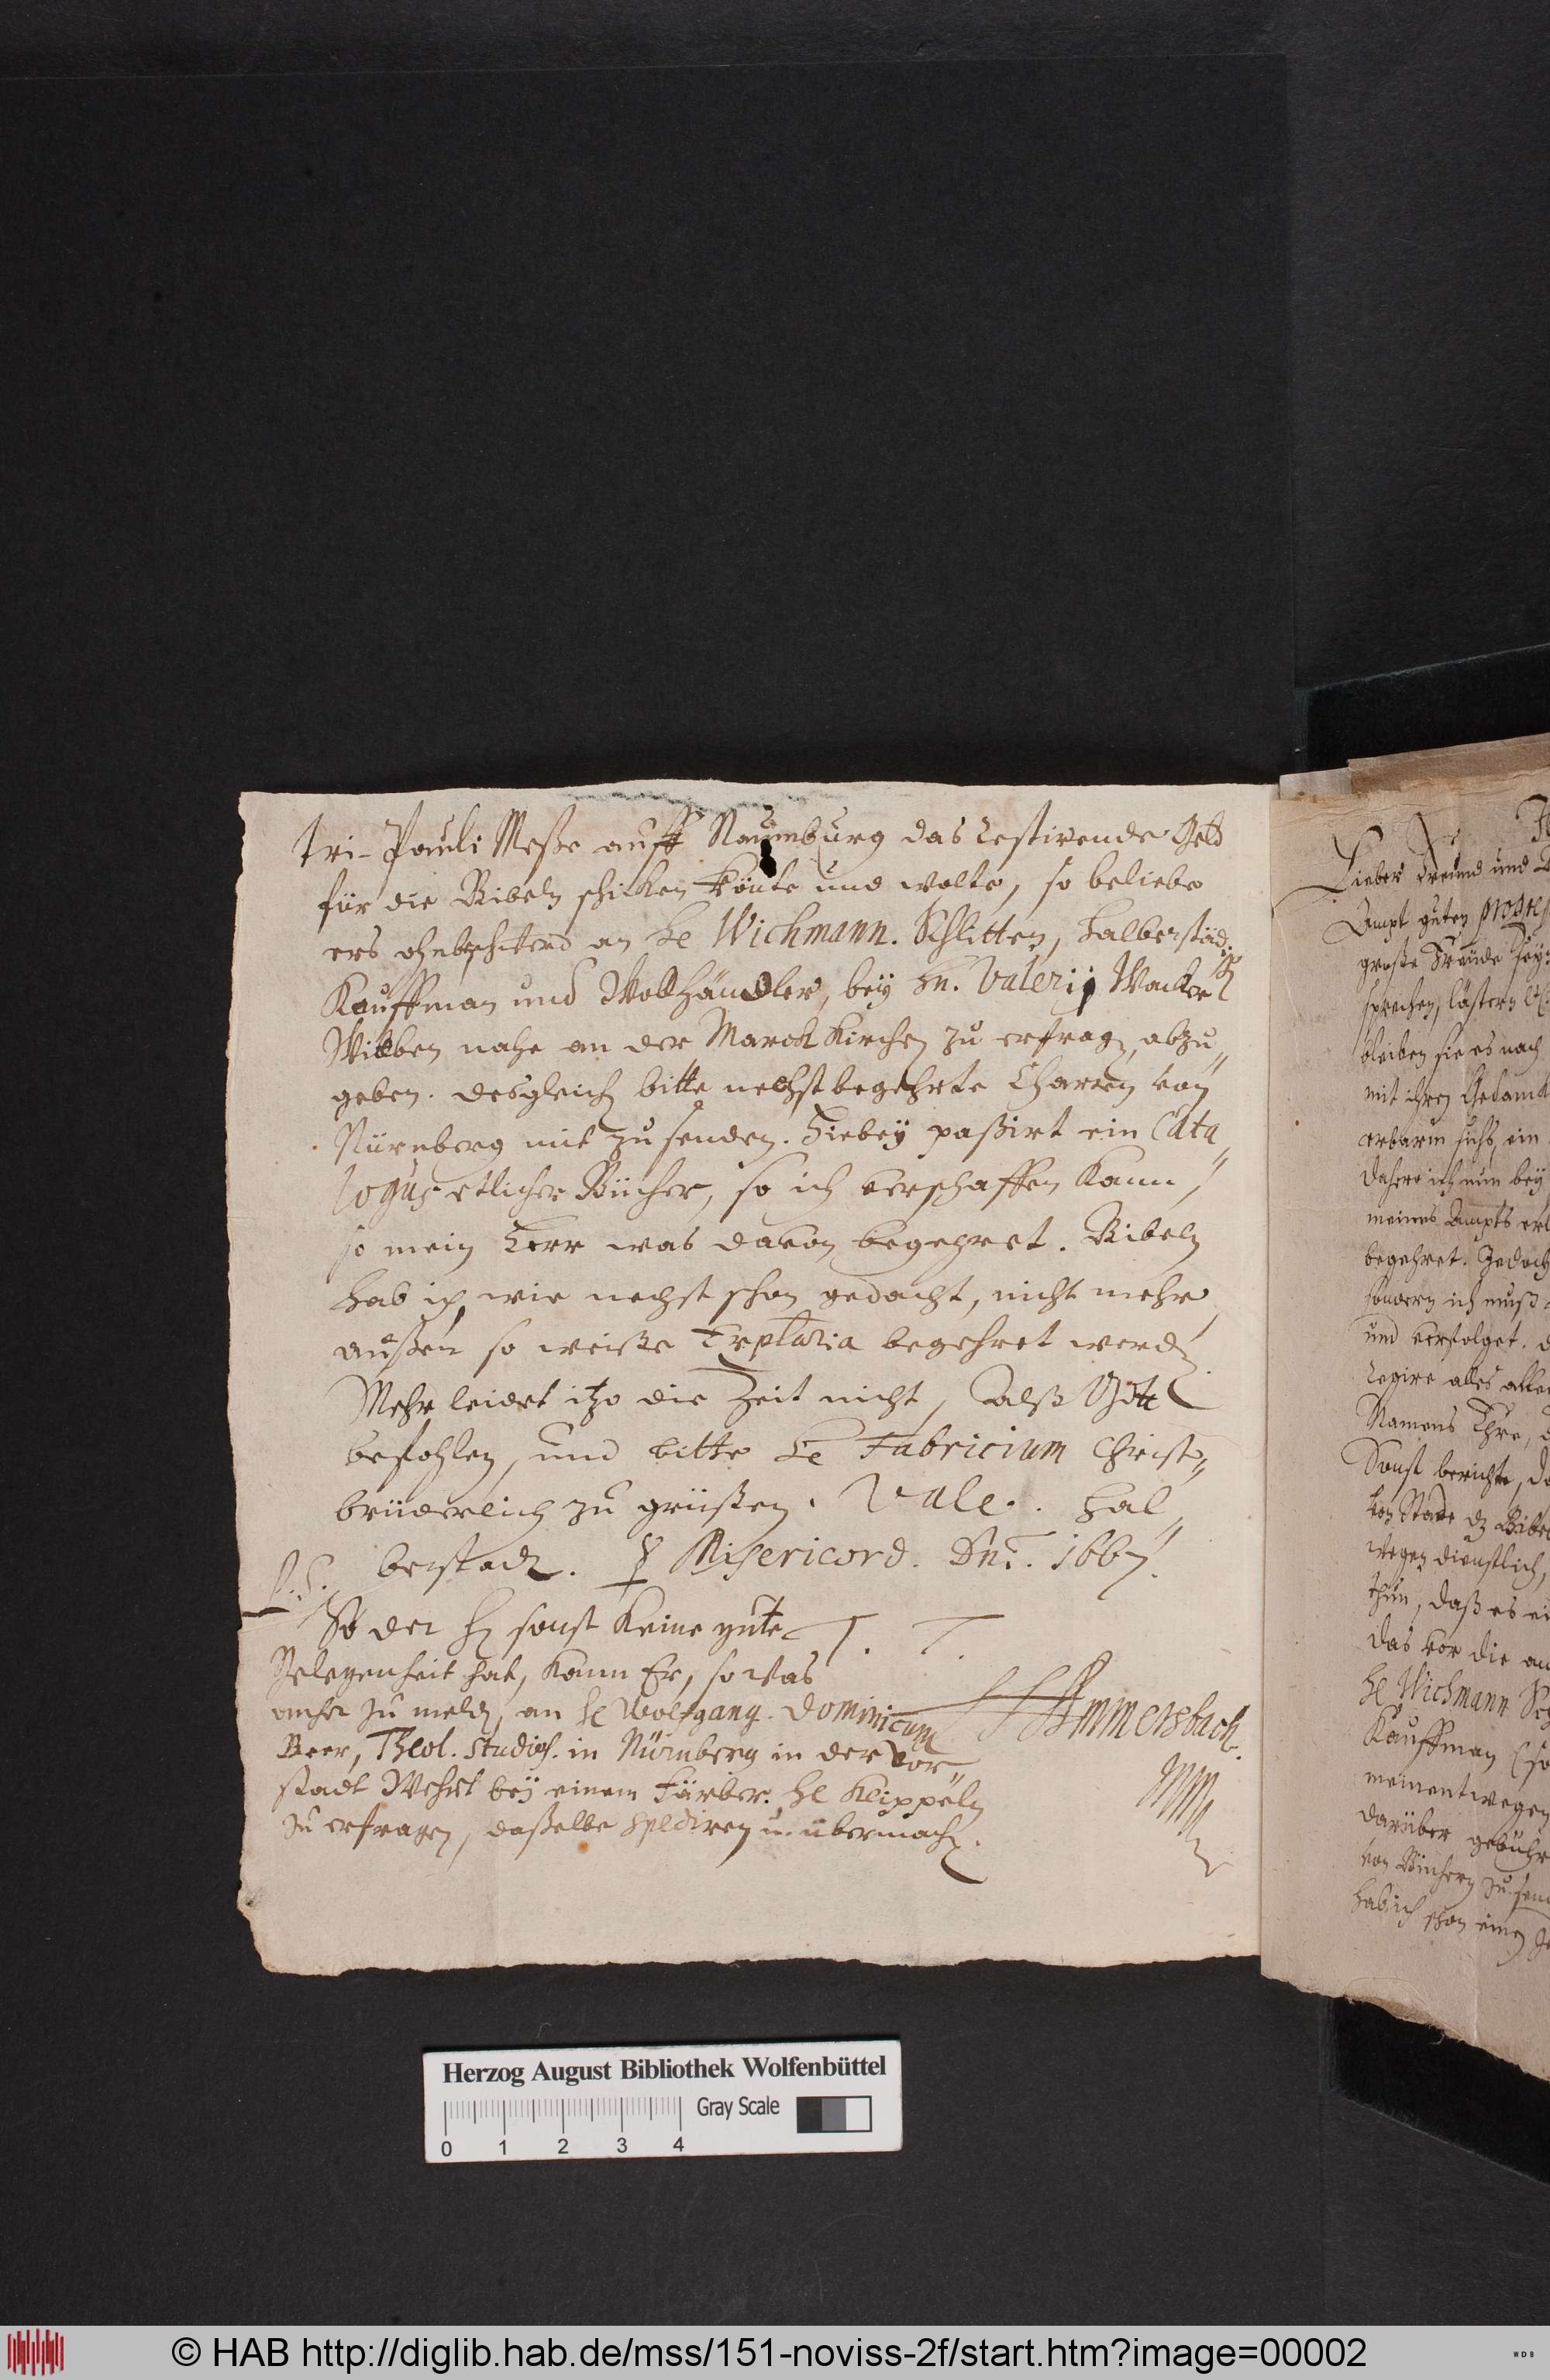 tri-Pauli Messe auff Naumburg das restirende Geld
für die Bibeln schicken könte und wolte, so beliebe
ers ohnbeschwerd an He Wichmann. Schlitten, Halberstäd.
Kauffman und Wollhändler, bey Hn. Valerij Wacker
Wittben nahe an der Marckt Kirchen zu erfragen, abzu„
geben. desgleichen bitte nechst begehrte Charten von
Nürnberg mit zu senden. Hiebey passirt ein Cata„
logus etlicher Bücher, so ich verschaffen kann,
so mein Herr was davon begehret. Bibeln
hab ich, wie nechst schon gedacht, nicht mehr,
aussen so weisse Explaria begehret werden.
Mehr leidet itzo die Zeit nicht, Alss Gott
befohlen, und bitte He Fabricium Christ„
brüderlich zu grüssen. Vale. Hal„
berstadt. Misericord. Dni. 1667.
P.S.
So der H sonst keine gute
T. T.
Gelegenheit hat, kann Er, so was
anher zu melden, an He Wolfgang. Dominicum
HAmmersbach.
Beer, Theol. Studios. in Nürnberg in der Vor„
stadt Wehrt bey einem Färber. He Klippeln
zu erfragen, dasselbe spediren u. übermachen.
Lieber Freund und
Ampt guten progress
grosse Freude sey:
sprechen, lästern etc.
bleiben sie es nach
mit ihren Gedanck
erbarm sichs, ein
Dahero ich nun bey
meines Ampts erl
begehret. Jedoch
sondern ich muss
und verfolget.
regire alles
Namens Ehre,
Sonst berichte, d
von Stade dz Bibel
wegen dienstlich,
thun, dass es ei
das vor die an
He Wichmann Sch
Kauffman (so
meinentwegen
darüber gebühr
von Büchern zu sen
hab ich schon einen
Herzog August Bibliothek Wolfenbüttel
Gray Scale
0 1 2 3 4
© HAB http://diglib.hab.de/mss/151-noviss-2f/start.htm?image=00002
WDB